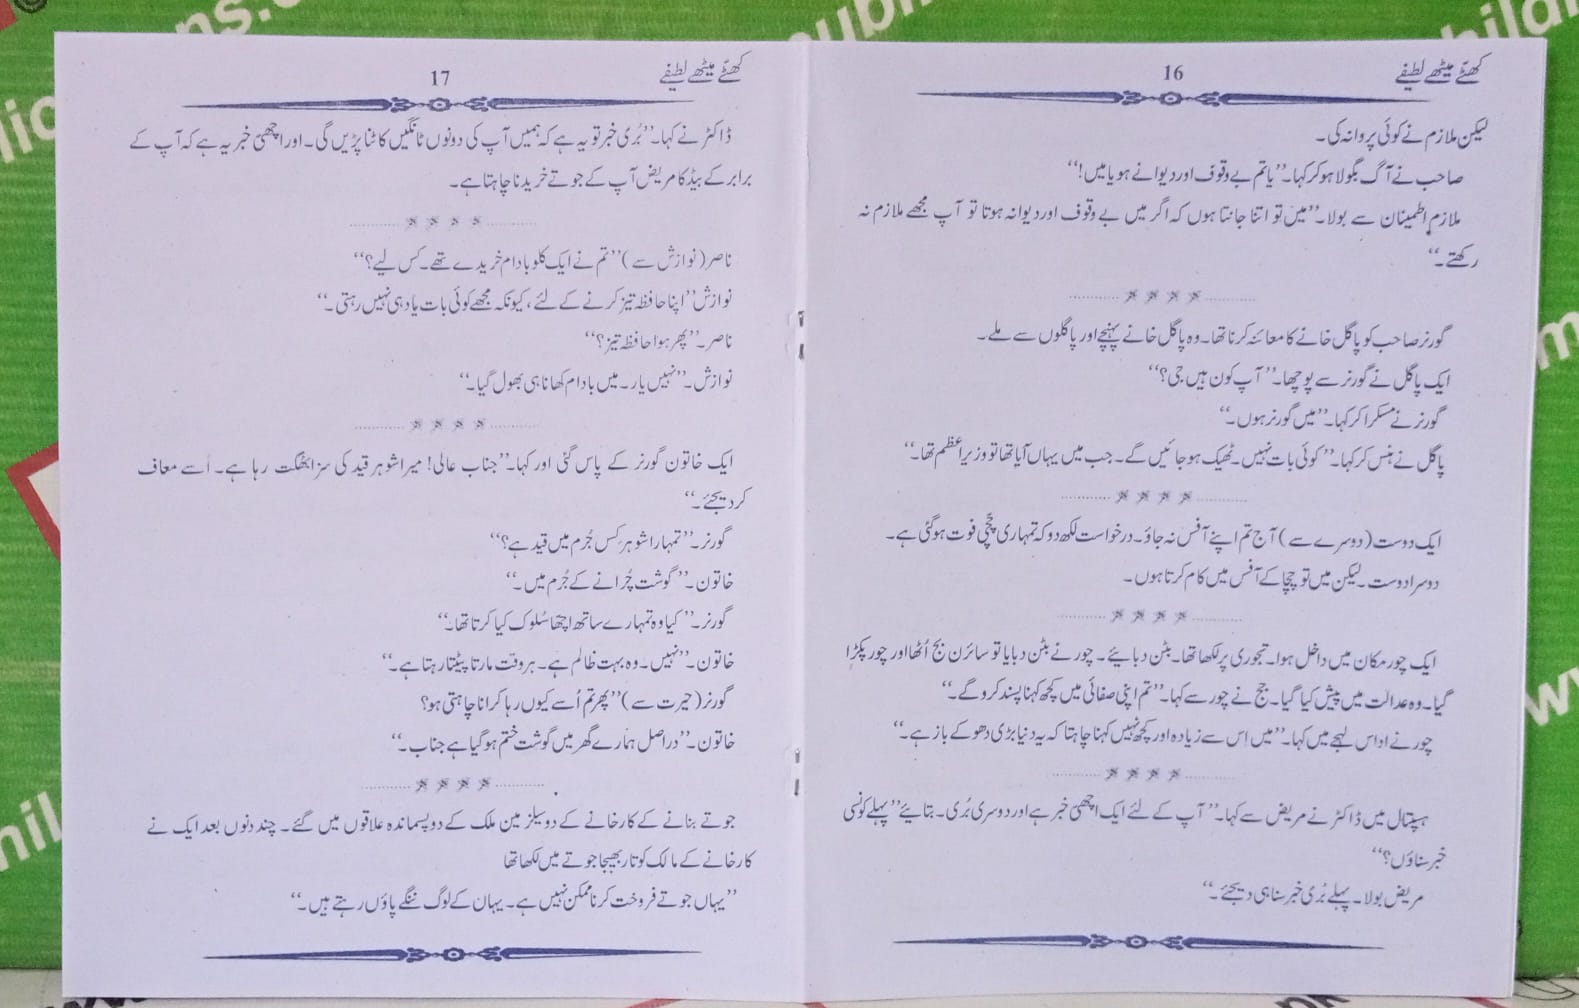 کھٹّے میٹھے لطیفے
16
لیکن ملازم نے کوئی پروا نہ کی۔
صاحب نے آگ بگولا ہو کر کہا۔ ’’یا تم بے وقوف اور دیوانے ہو یا میں!‘‘
ملازم اطمینان سے بولا۔ ’’میں تو اتنا جانتا ہوں کہ اگر میں بے وقوف اور دیوانہ ہوتا تو آپ مجھے ملازم نہ
رکھتے۔‘‘
گورنر صاحب کو پاگل خانے کا معائنہ کرنا تھا۔ وہ پاگل خانے پہنچے اور پاگلوں سے ملے۔
ایک پاگل نے گورنر سے پوچھا۔ ’’آپ کون ہیں جی؟‘‘
گورنر نے مسکرا کر کہا۔ ’’میں گورنر ہوں۔‘‘
پاگل نے ہنس کر کہا۔ ’’کوئی بات نہیں۔ ٹھیک ہو جائیں گے۔ جب میں یہاں آیا تھا تو وزیرِ اعظم تھا۔‘‘
ایک دوست (دوسرے سے) آج تم اپنے آفس نہ جاؤ۔ درخواست لکھ دو کہ تمہاری چچّی فوت ہو گئی ہے۔
دوسرا دوست۔ لیکن میں تو چچا کے آفس میں کام کرتا ہوں۔
ایک چور مکان میں داخل ہوا۔ تجوری پر لکھا تھا۔ بٹن دبائیے۔ چور نے بٹن دبایا تو سائرن بج اُٹھا اور چور پکڑا
گیا۔ وہ عدالت میں پیش کیا گیا۔ جج نے چور سے کہا۔ ’’تم اپنی صفائی میں کچھ کہنا پسند کرو گے۔‘‘
چور نے اداس لہجے میں کہا۔ ’’میں اس سے زیادہ اور کچھ نہیں کہنا چاہتا کہ یہ دنیا بڑی دھوکے باز ہے۔‘‘
ہسپتال میں ڈاکٹر نے مریض سے کہا۔ ’’آپ کے لئے ایک اچھّی خبر ہے اور دوسری بُری۔ بتائیے’’ پہلے کونسی
خبر سناؤں؟‘‘
مریض بولا۔ پہلے بُری خبر سنا ہی دیجئے۔‘‘
کھٹّے میٹھے لطیفے
17
ڈاکٹر نے کہا۔ ’’بُری خبر تو یہ ہے کہ ہمیں آپ کی دونوں ٹانگیں کاٹنا پڑیں گی۔ اور اچھّی خبر یہ ہے کہ آپ کے
برابر کے بیڈ کا مریض آپ کے جوتے خریدنا چاہتا ہے۔
ناصر (نوازش سے) ’’تم نے ایک کلو بادام خریدے تھے۔ کس لیے؟‘‘
نوازش ’’اپنا حافظہ تیز کرنے کے لئے، کیونکہ مجھے کوئی بات یاد ہی نہیں رہتی۔‘‘
ناصر۔ ’’پھر ہوا حافظہ تیز؟‘‘
نوازش۔ ’’نہیں یار۔ میں بادام کھانا ہی بھول گیا۔‘‘
ایک خاتون گورنر کے پاس گئی اور کہا۔ ’’جناب عالی! میرا شوہر قید کی سزا بھگت رہا ہے۔ اُسے معاف
کر دیجئے۔‘‘
گورنر۔ ’’تمہارا شوہر کس جُرم میں قید ہے؟‘‘
خاتون۔ ’’گوشت چُرانے کے جُرم میں۔‘‘
گورنر۔ ’’کیا وہ تمہارے ساتھ اچھا سُلوک کیا کرتا تھا۔‘‘
خاتون۔ ’’نہیں۔ وہ بہت ظالم ہے۔ ہر وقت مارتا پیٹتا رہتا ہے۔‘‘
گورنر (حیرت سے) ’’پھر تم اُسے کیوں رہا کرانا چاہتی ہو؟
خاتون۔ ’’دراصل ہمارے گھر میں گوشت ختم ہو گیا ہے جناب۔‘‘
جوتے بنانے کے کارخانے کے دو سیلز مین ملک کے دو پسماندہ علاقوں میں گئے۔ چند دنوں بعد ایک نے
کارخانے کے مالک کو تار بھیجا جوتے میں لکھا تھا
’’یہاں جوتے فروخت کرنا ممکن نہیں ہے۔ یہاں کے لوگ ننگے پاؤں رہتے ہیں۔‘‘